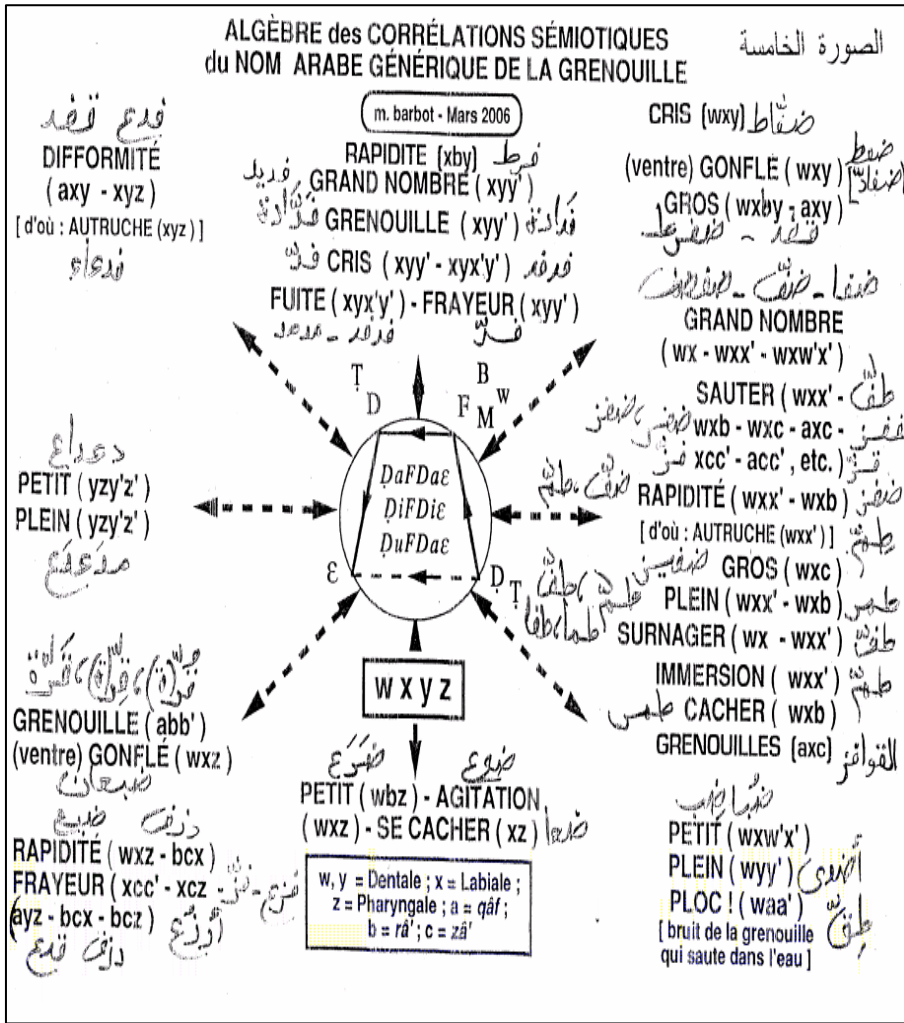 ALGÈBRE des CORRÉLATIONS SÉMIOTIQUES
du NOM ARABE GÉNÉRIQUE DE LA GRENOUILLE
الصورة الخامسة
m. barbot - Mars 2006
فدع قفد
DIFFORMITÉ
( axy - xyz )
[ d'où : AUTRUCHE (xyz) ]
فدعاء
RAPIDITE (xby) فرط
فديد GRAND NOMBRE ( xyy' )
GRENOUILLE ( xyy' ) فدّادة
فدّ CRIS ( xyy' - xyx'y' ) فدفد
FUITE ( xyx'y' ) - FRAYEUR ( xyy' )
CRIS (wxy) ضفّاط
(ventre) GONFLÉ ( wxy )
GROS ( wxby - axy )
قفد - ضفرط
ضفا - ضفّ - ضفضف
GRAND NOMBRE
( wx - wxx' - wxw'x' )
SAUTER ( wxx' - طفّ
wxb - wxc - axc - قفز
xcc' - acc' , etc. ) قزّ
RAPIDITÉ ( wxx' - wxb ) ضفر
ضفّ، طمّ
[ d'où : AUTRUCHE (wxx' ) ]
GROS ( wxc )
PLEIN ( wxx' - wxb )
SURNAGER ( wx - wxx' )
طما، طفا
IMMERSION ( wxx' ) طمّ
CACHER ( wxb )
GRENOUILLES (axc) القوافز
Ṭ D B F M w
ḌaFDaε
ḌiFDiε
ḌuFDaε
ε Ḍ Ṭ
w x y z
دعداع
PETIT ( yzy'z' )
PLEIN ( yzy'z' )
مدعدع
GRENOUILLE ( abb' )
(ventre) GONFLÉ ( wxz )
ضبعان
زرف ضبع
RAPIDITÉ ( wxz - bcx )
FRAYEUR ( xcc' - xcz - فزّ - فزع
(ayz - bcx - bcz )
ضرع ضوع
PETIT ( wbz ) - AGITATION
( wxz ) - SE CACHER ( xz )
w, y = Dentale ; x = Labiale ;
z = Pharyngale ; a = qâf ;
b = râ' ; c = zâ'
PETIT ( wxw'x' )
PLEIN ( wyy' )
PLOC ! ( waa' ) طقّ
[ bruit de la grenouille
qui saute dans l'eau ]